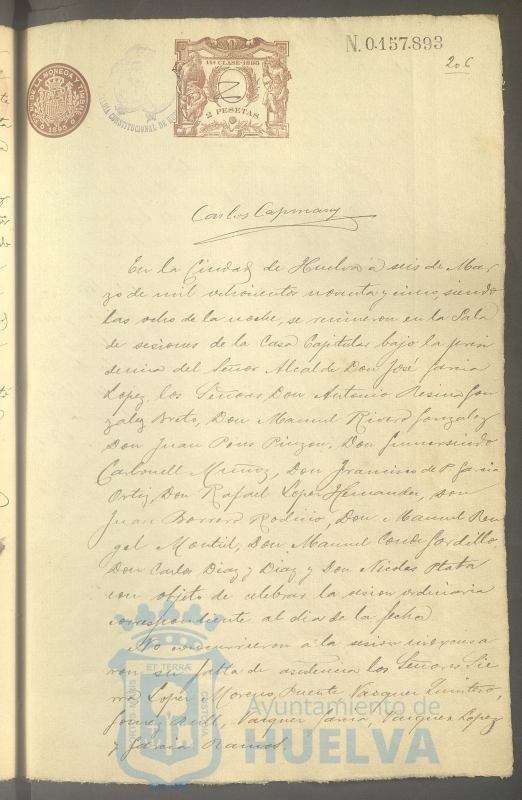 N. 0.157.893
206
11ª CLASE-1895
2 PESETAS
1895
Carlos Capmany
En la Ciudad de Huelva á seis de Mar
zo de mil ochocientos noventa y cinco, siendo
las ocho de la noche, se reunieron en la Sala
de sesiones de la Casa Capitular bajo la presi
dencia del Señor Alcalde Don José Garcia
Lopez, los Señores Don Antonio Resina Gon
zalez Brito, Don Manuel Rivero Gonzalez
Don Juan Pons Pinzon, Don Gumersindo
Carbonell Muñoz, Don Francisco de P. Garcia
Ortiz, Don Rafael Lopez Hernandez, Don
Juan Borrero Rodino, Don Manuel Ren
gel Montiel, Don Manuel Conde Gordillo
Don Carlos Diaz y Diaz y Don Nicolas Plata
con objeto de celebrar la sesion ordinaria
correspondiente al dia de la fecha
No concurrieron á la sesion ni escusa
ron su falta de asistencia los Señores Sie
rra Lopez Moreno, Puente, Vazquez Quintero,
Gomez, Vazquez Garcia, Vazquez Lopez
y Garcia Ramos.
Ayuntamiento de
HUELVA